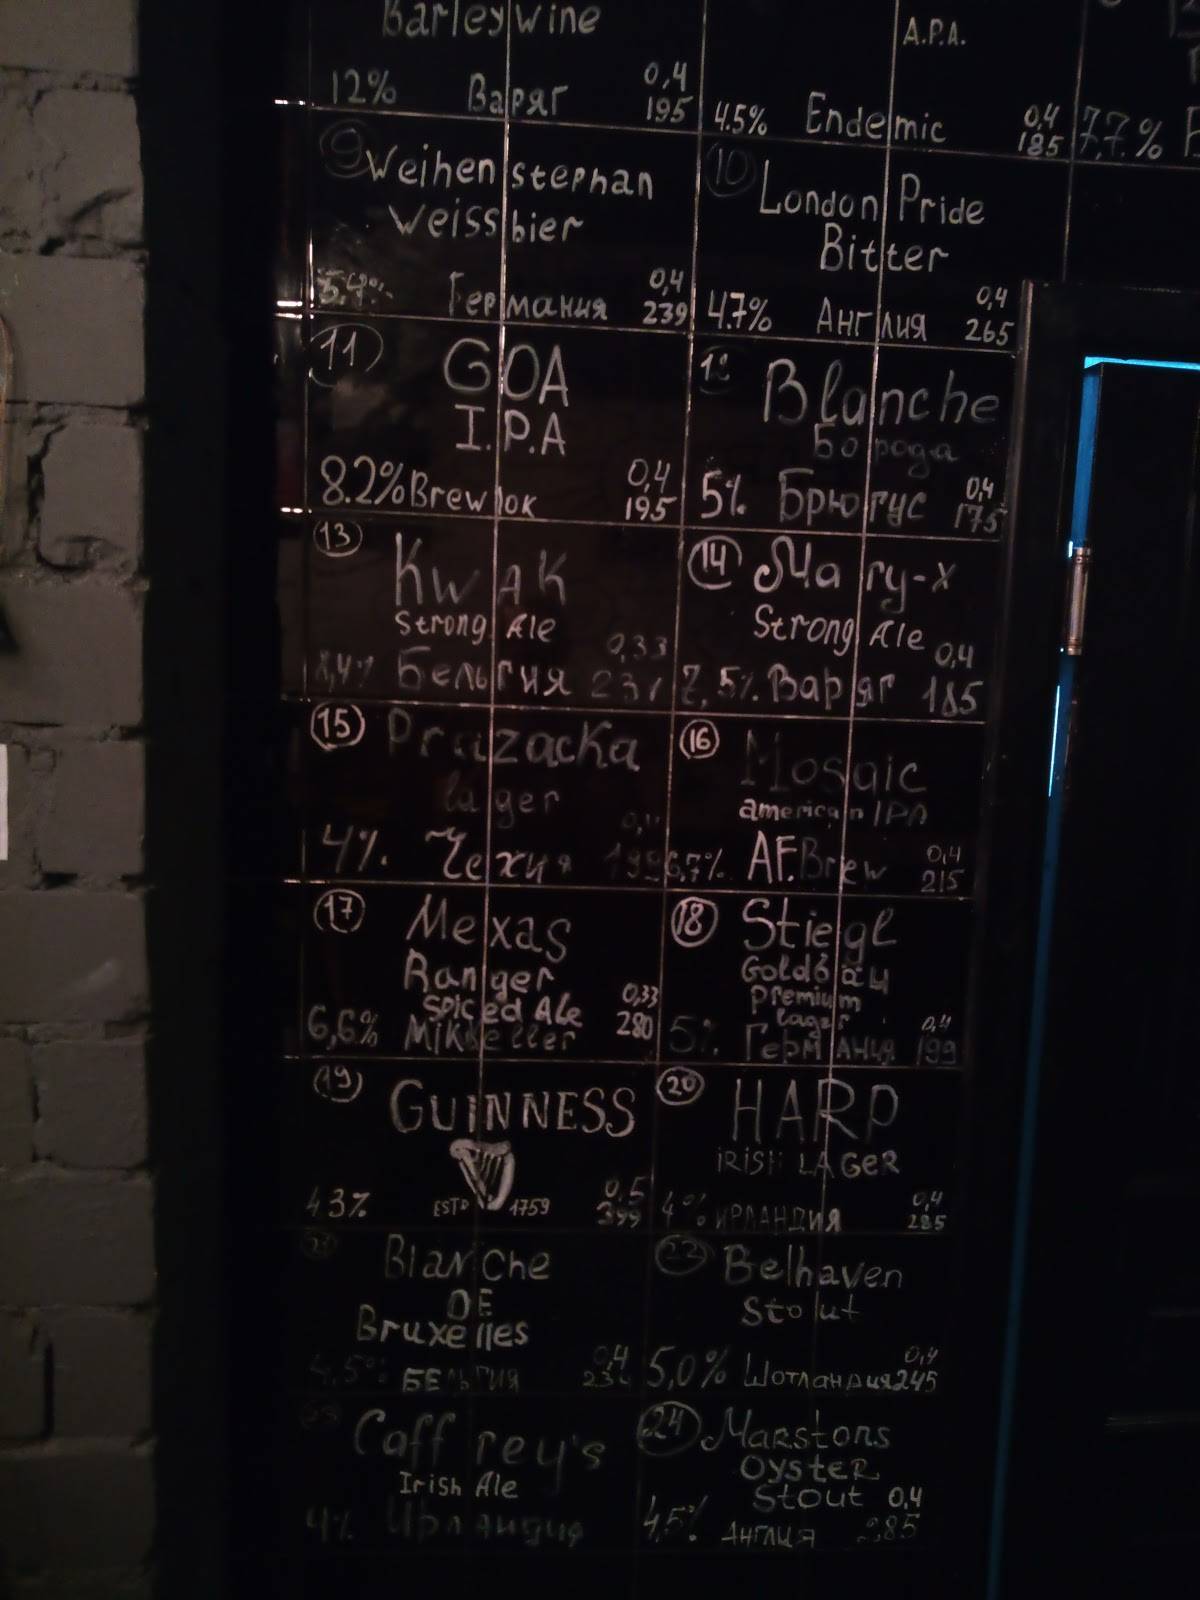 Barleywine
12% Варяг 0,4
195
A.P.A.
4.5% Endemic 0,4
185
7,7.%
9 Weihenstephan
Weissbier
Германия 0,4
239
10 London Pride
Bitter
4.7% Англия 0,4
265
11 GOA
I.P.A
8.2% Brewlok 0,4
195
Blanche
Борода
5% Брюгус 0,4
175
13 Kwak
Strong Ale
8,4% Бельгия 0,33
14 Mary-x
Strong Ale
7,5% Варяг 0,4
185
15 Prazacka
lager
4% Чехия
16 Mosaic
american IPA
6,7% AF.Brew 0,4
215
17 Mexas
Ranger
Spiced Ale
6,6% Mikkeller 0,33
280
18 Stiegl
Goldbäu
Premium
lager
5% Германия 0,4
199
19 GUINNESS
43% ESTD 1759 0,5
399
20 HARP
IRISH LAGER
4% ИРЛАНДИЯ 0,4
285
Blanche
DE
Bruxelles
4,5% БЕЛЬГИЯ 0,4
22 Belhaven
Stolut
5,0% Шотландия 0,4
245
Caffrey's
Irish Ale
4% Ирландия
24 Marstons
Oyster
Stout 0,4
4,5% Англия 285